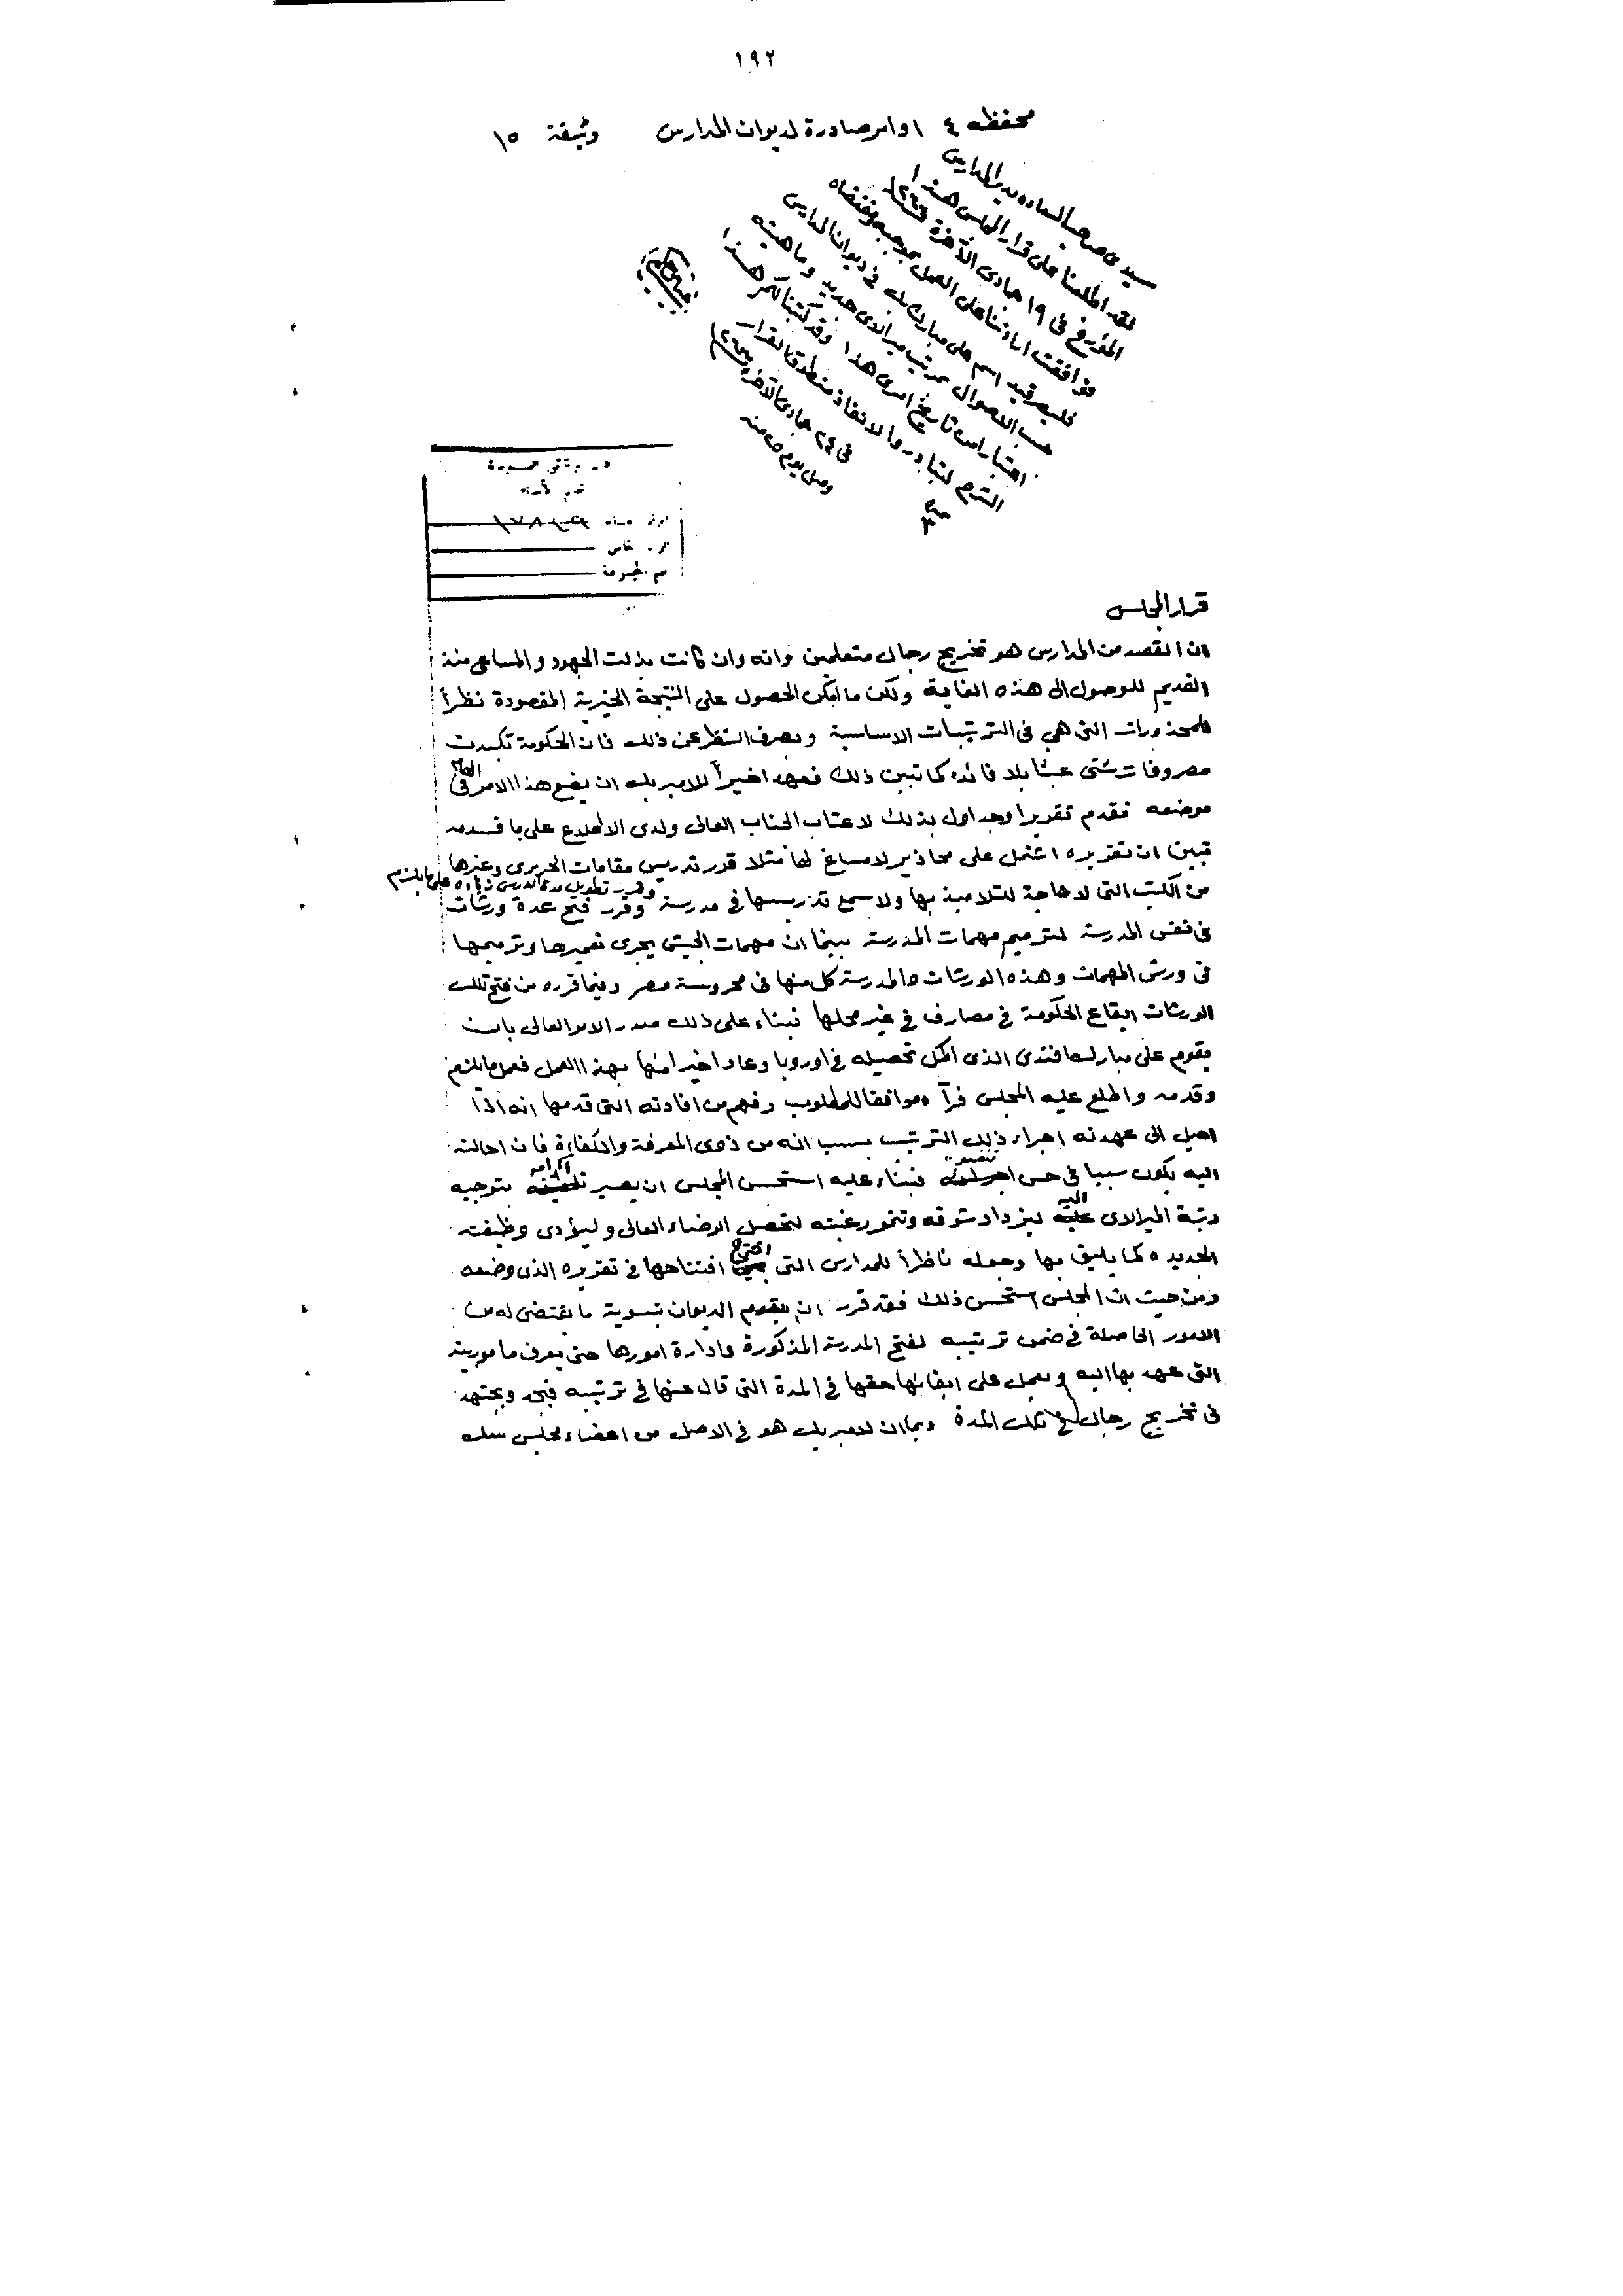 ١٩٢
محفظه ٤ اوامر صادرة لديوان المدارس وثيقة ١٥
سيدى صاحب السعاده مدير المدارس
لقد اطلعنا على قرار المجلس هذا
المؤرخ فى ١٩ جمادى الآخرة
فوافقت ارادتنا على العمل بموجبه ومقتضاه
فليصر قيد اسم على مبارك بك فى ديوان المدارس
حسب الاصول بمرتب ميرالاى جديد وماهيته
اعتبارا من تاريخ امرى هذا وقد كتبنا لكم هذا
لتبادروا لانفاذ منطوق القرار
فى ٢٤ جمادى الآخرة
وصل يوم ٥ منه
قرار المجلس
ان القصد من المدارس هو تخريج رجال متعلمين وانه وان كانت بذلت الجهود والمساعى منذ
القديم للوصول الى هذه الغاية ولكن ما امكن الحصول على النتيجة الخيرية المقصودة نظراً
للمحذورات التى هى فى الترتيبات الاساسية وبصرف النظر عن ذلك فان الحكومة تكبدت
مصروفات شتى عبثا بلا فائده كما تبين ذلك فعهد اخيراً للامبر بك ان يضع هذا الامر الهام فى
موضعه فقدم تقريرا وجداول بذلك لاعتاب الجناب العالى ولدى الاطلاع على ما قدمه
تبين ان تقريره اشتمل على محاذير لا مساغ لها فمثلا قرر تدريس مقامات الحريرى وغيرها
من الكتب التى لا حاجة للتلاميذ بها ولا سمع تدريسها فى مدرسة وقرر تطويل مدة الدرس زياده على ما يلزم وقرر فتح عدة ورشات
فى نفس المدرسة لترميم مهمات المدرسة بينما ان مهمات الجيش يجرى تعميرها وترميمها
فى ورش المهمات وهذه الورشات والمدرسة كل منها فى محروسة مصر وفيما قرره من فتح تلك
الورشات ايقاع الحكومة فى مصارف فى غير محلها فبناء على ذلك صدر الامر العالى بان
يقوم على مبارك افندى الذى اكمل تحصيله فى اوروبا وعاد اخيرا منها بهذا العمل فعمل ما يلزم
وقدمه واطلع عليه المجلس فرآه موافقا للمطلوب وفهم من افادته التى قدمها انه اذا
احيل الى عهدته اجراء ذلك الترتيب بسبب انه من ذوى المعرفة والكفاءة فان احالته
اليه يكون سببا فى حسن فبناء عليه استحسن المجلس ان يصير اكرامه بتوجيه
رتبة الميرالاى اليه ليزداد شوقه وتنمو رغبته لتحصل الرضاء العالى وليؤدى وظيفته
الجديده كما يليق بها وجعله ناظراً للمدارس التى اقترح افتتاحها فى تقريره الذى وضعه
ومن حيث ان المجلس استحسن ذلك فقد قرر ان يقوم الديوان بتسوية ما يقتضى له من
الامور الحاصلة فى ضمن ترتيبه لفتح المدرسة المذكورة وادارة امورها حتى يعرف مأموريته
التى عهد بها اليه ويعمل على ايفائها حقها فى المدة التى قال عنها فى ترتيبه فيجد ويجتهد
فى تخريج رجال فى تلك المدة وبما ان لامبر بك هو فى الاصل من اعضاء مجلس سلك